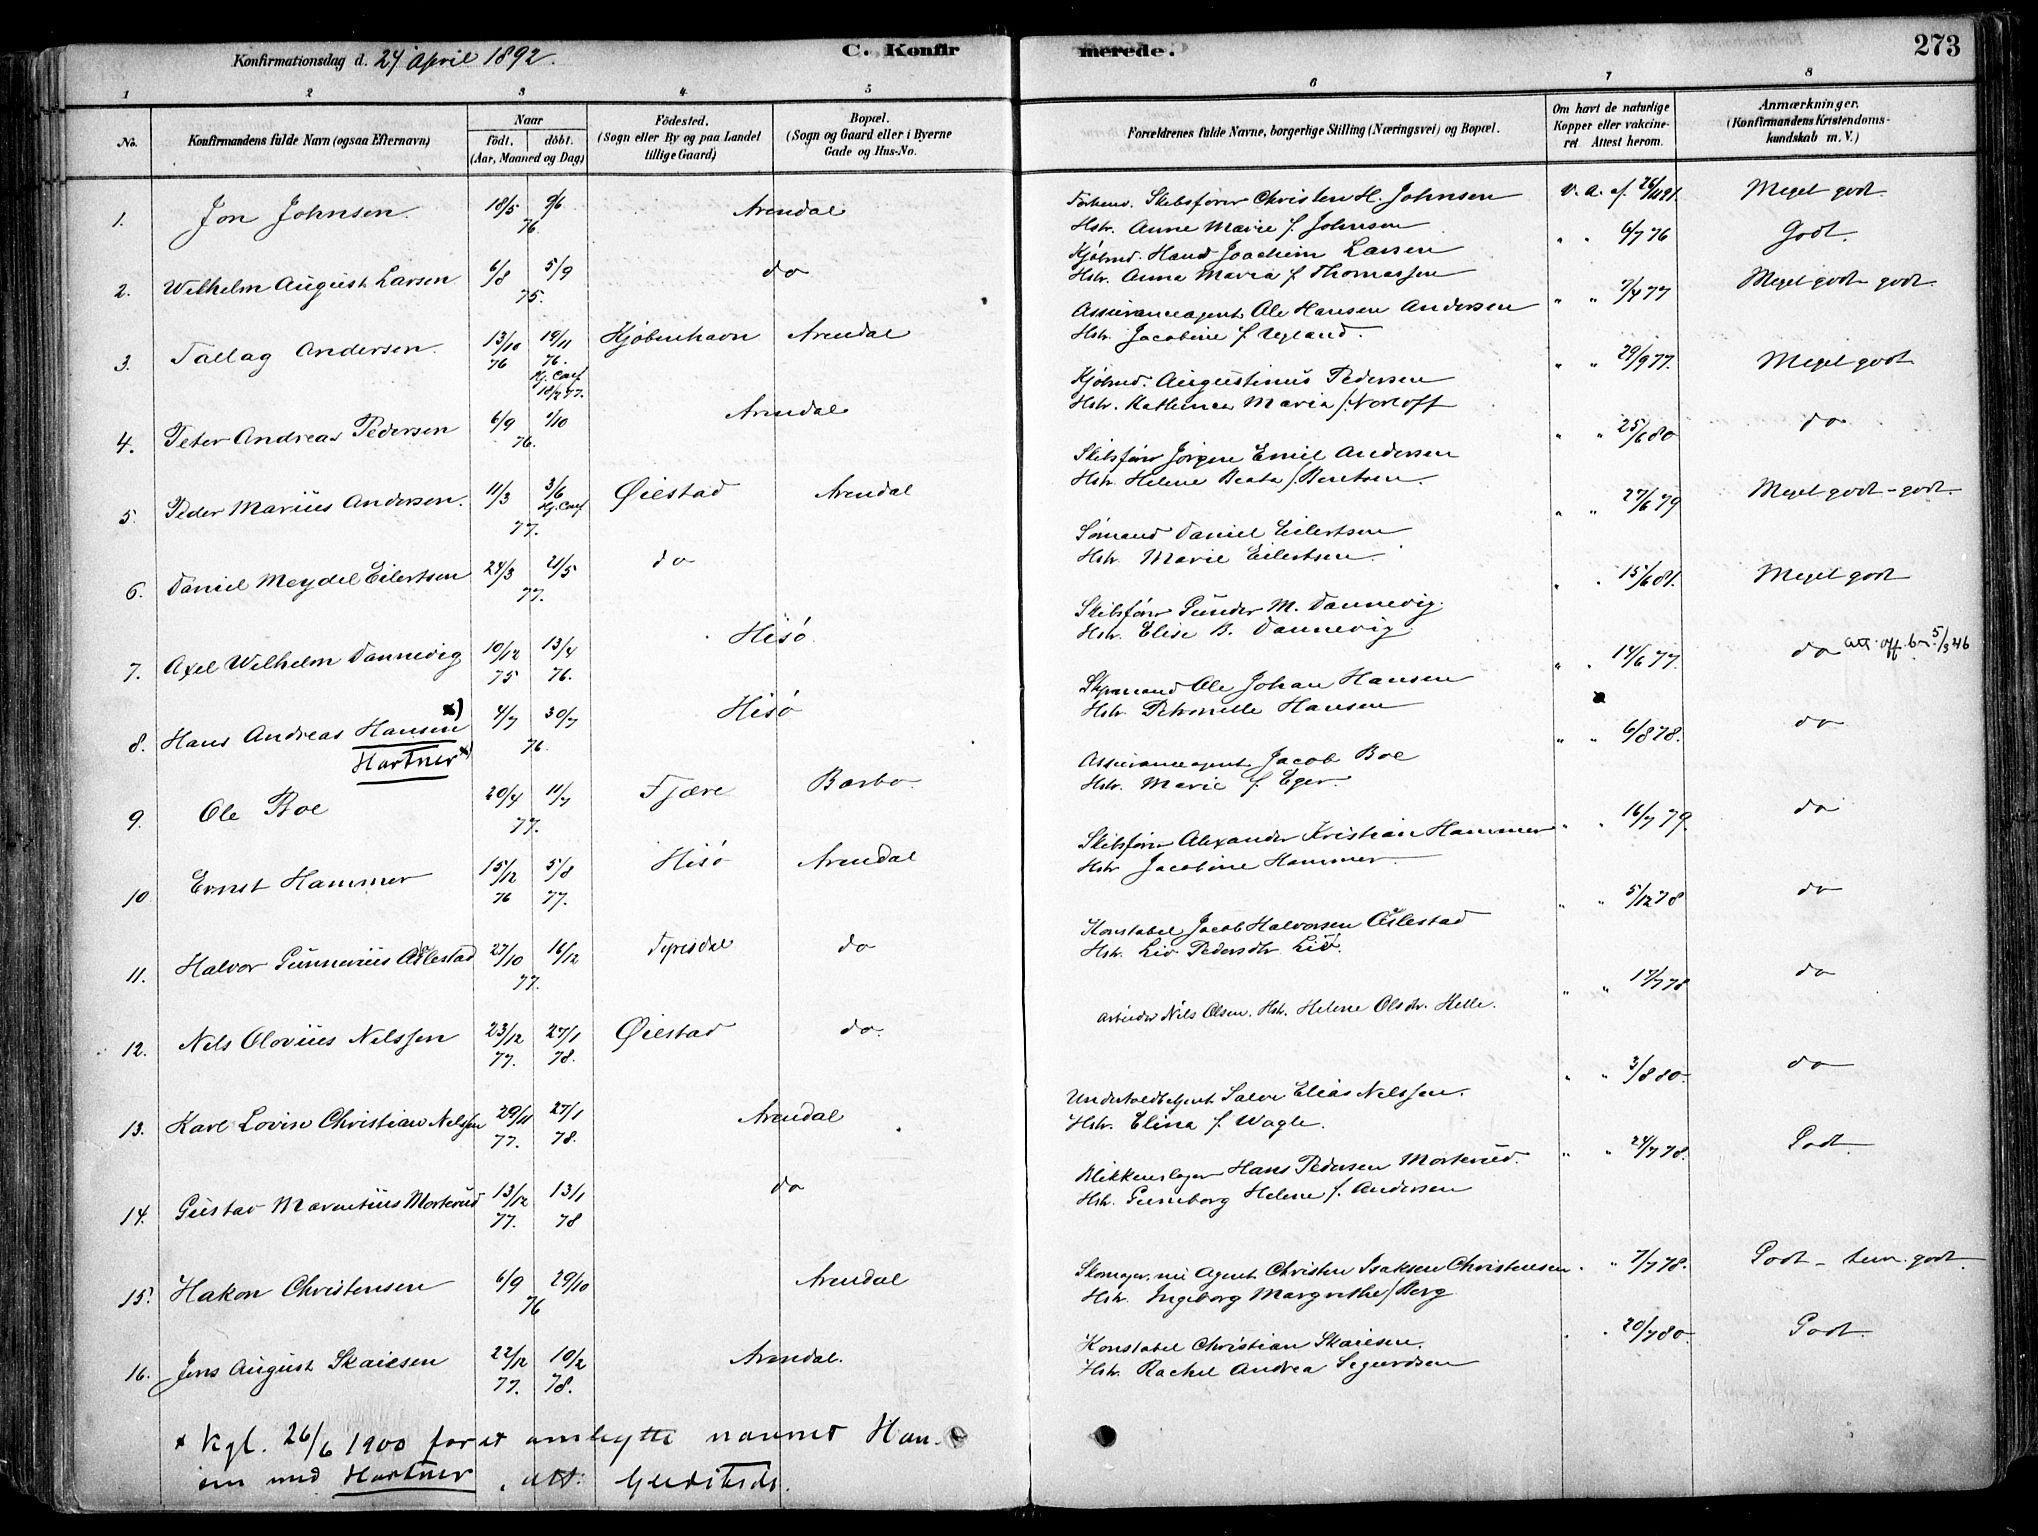 Konfirmationsdag d. 24 April 1892.
C. Konfirmerede.
273
1 2 3 4 5 6 7 8
No.
Konfirmandens fulde Navn (ogsaa Efternavn)
Naar
födt. döbt.
(Aar, Maaned og Dag)
Födested.
(Sogn eller By og paa Landet
tillige Gaard)
Bopæl.
(Sogn og Gaard eller i Byerne
Gade og Hus-No.
Forældrenes fulde Navne, borgerlige Stilling (Næringsvei) og Bopæl.
Om havt de naturlige
Kopper eller vakcine-
ret Attest herom.
Anmærkninger.
(Konfirmandens Kristendoms-
kundskab m. V.)
1. Jon Johnsen. 18/5 9/6 76. Arendal
Forhenv. Skibsfører Christen H. Johnsen
Hstr. Anne Marie f. Johnsen
v. a. af Meget godt.
2. Wilhelm August Larsen 6/8 5/9 75. do
Kjøbmd. Hans Joachim Larsen
Hstr. Anna Maria f. Thomassen
" " 6/7 76 Godt.
3. Tallag Andersen. 13/10 76 19/11 76. Kj. Conf 18/2 77. Kjöbenhavn Arendal
Assuranceagent Ole Hansen Andersen
Hstr. Jacobine f. Ugland.
" " 7/4 77 Meget godt - godt.
4. Peter Andreas Pedersen 6/9 1/10 76. Arendal
Kjøbmd. Augustinus Pedersen
Hstr. Kathinca Maria f. Norloff
" " 29/9 77. Meget godt
5. Peder Marius Andersen. 11/3 3/6 Kj. Conf 77. Øiestad Arendal
Skibsfører Jörgen Emil Andersen
Hstr. Helene Beata f. Bentsen.
" " 25/6 80 do
6. Daniel Meydel Eilertsen 24/3 21/5 77. do
Sømand Daniel Eilertsen
Hstr. Marie Eilertsen.
" " 27/6 79 Meget godt - godt.
7. Axel Wilhelm Dannevig 10/12 75 13/4 76. Hisö.
Skibsfører Gunder M. Dannevig.
Hstr. Elise B. Dannevig.
" " 15/6 81. Meget godt
8. Hans Andreas Hansen x) 4/7 30/7 76. Hisö
Hartner x)
Styrmand Ole Johan Hansen
Hstr. Petronelle Hansen
" " 14/6 77. do att. off. b.a. 5/3 46
9. Ole Boe 20/4 11/7 77. Fjære Barbo.
Assuranceagent Jacob Boe
Hstr. Marie f. Eger.
" " 6/8 78. do
10 Ernst Hammer 15/12 76 5/8 77. Hisö Arendal
Skibsfører Alexander Kristian Hammer
Hstr Jacobine Hammer.
" " 16/7 79. do
11. Halvor Gunnerius Aslestad 27/10 16/12 77. Tyrisdal do
Konstabel Jacob Halvorsen Aslestad
Hstr. Liv Pedersdtr. Liv.
" " 5/12 78 do
12. Nils Olovius Nilssen 23/12 77. 27/1 78. Øiestad do.
Arbeider Nils Olsen. Hstr. Helene Olsdtr. Helle.
" " 17/7 78 do
13. Karl Lovin Christian Nilssen 29/11 77. 27/1 78. Arendal
Underfoldbetjent Salve Elias Nilssen.
Hstr. Elina f. Wagle.
" " 3/8 80. do
14. Gustav Marentius Morterud 13/12 77. 13/1 78 do
Blikkenslager Hans Pedersen Morterud.
Hstr. Gunnborg Helene f. Andersen
" " 24/7 78. Godt.
15. Hakon Christensen 6/9 29/10 76 Arendal
Skomager, nu Agent Christen Isaksen Christensen
Hstr. Ingeborg Margrethe f. Berg
" " 7/7 78. Godt - tem. godt.
16. Jens August Skaiesen 22/12 77. 10/2 78. Arendal.
Konstabel Christian Skaiesen.
Hstr. Rachel Andrea Sigurdsen
" " 20/7 80. Godt.
x kgl. 26/6 1900 for at ombytte navnet Han-
sen med Hartner, att: